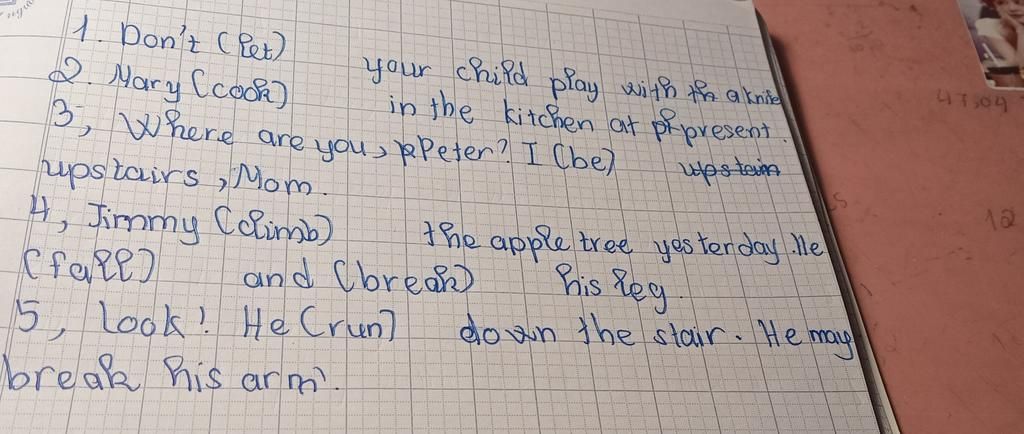 1. Don't (let) your child play with a knife
2. Mary (cook) in the kitchen at present.
3, Where are you, Peter? I (be)
upstairs, Mom.
4, Jimmy (climb) the apple tree yesterday. He
(fall) and (break) his leg.
5, Look! He (run) down the stair. He may
break his arm.
47304
12